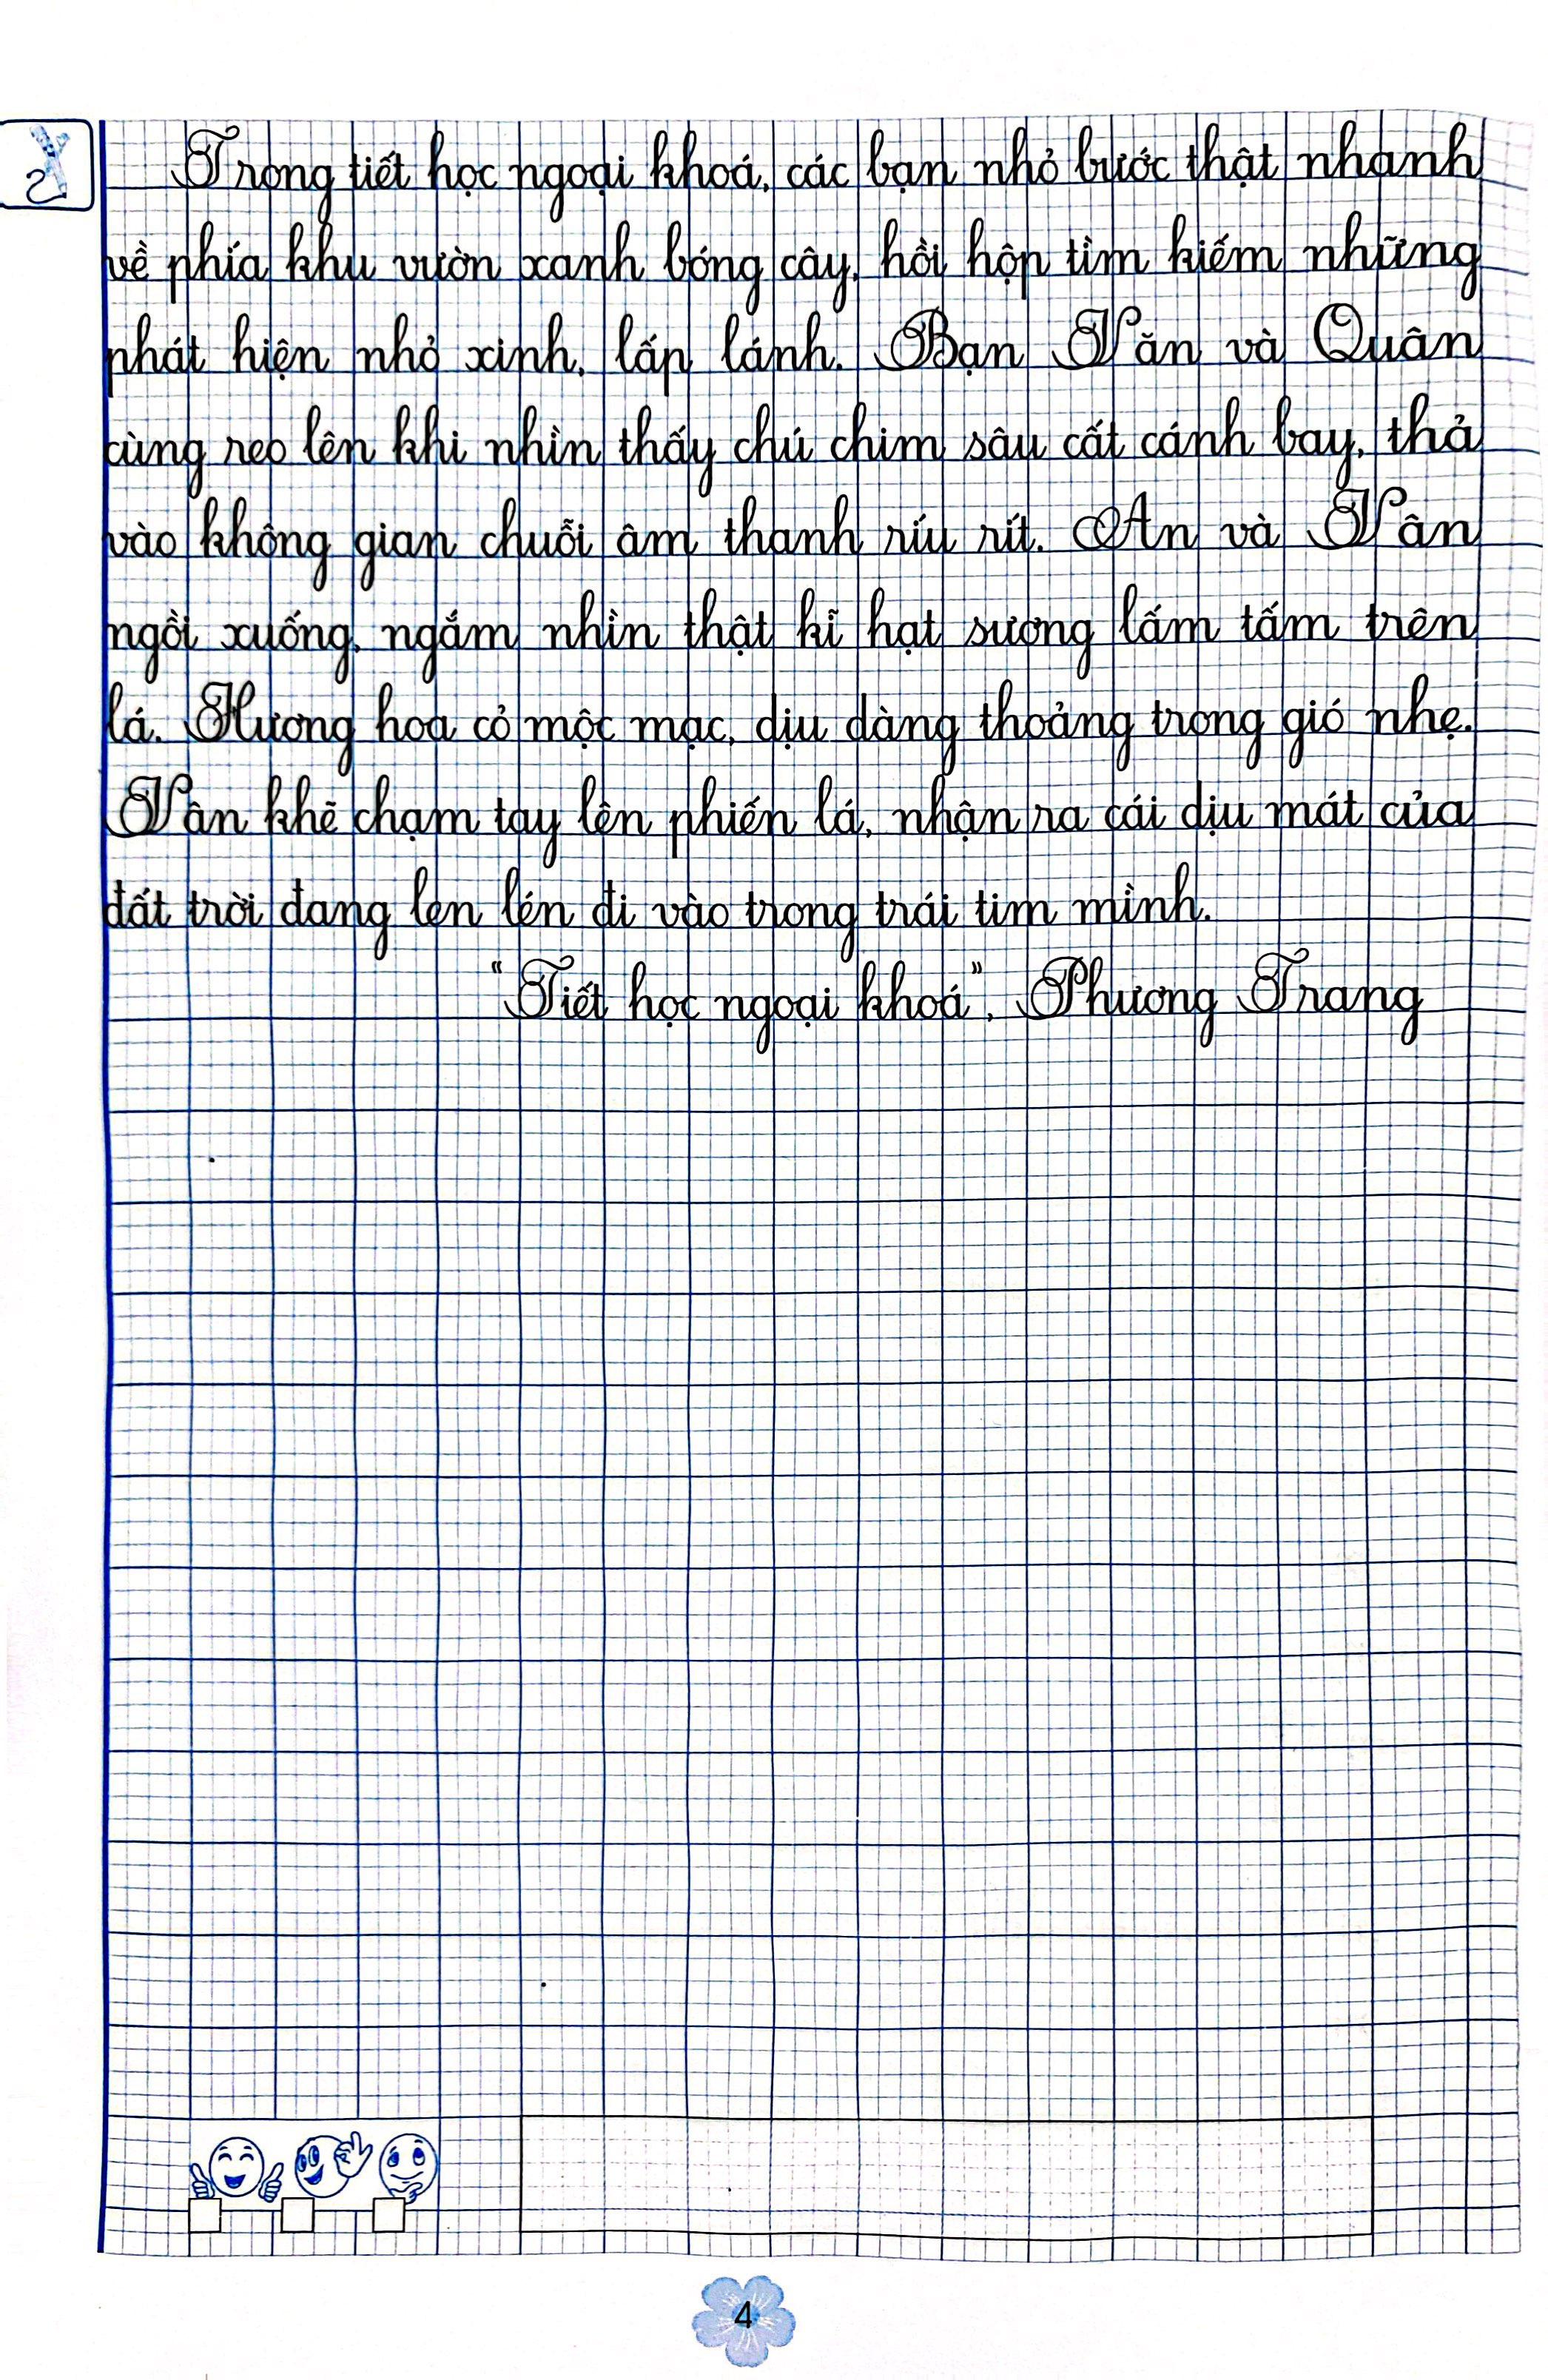 Trong tiết học ngoại khoá, các bạn nhỏ bước thật nhanh
về phía khu vườn xanh bóng cây, hồi hộp tìm kiếm những
phát hiện nhỏ xinh, lấp lánh. Bạn Văn và Quân
cùng reo lên khi nhìn thấy chú chim sâu cất cánh bay, thả
vào không gian chuỗi âm thanh ríu rít. An và Vân
ngồi xuống, ngắm nhìn thật kĩ hạt sương lấm tấm trên
lá. Hương hoa cỏ mộc mạc, dịu dàng thoảng trong gió nhẹ.
Vân khẽ chạm tay lên phiến lá, nhận ra cái dịu mát của
đất trời đang len lén đi vào trong trái tim mình.
"Tiết học ngoại khoá", Phương Trang
4